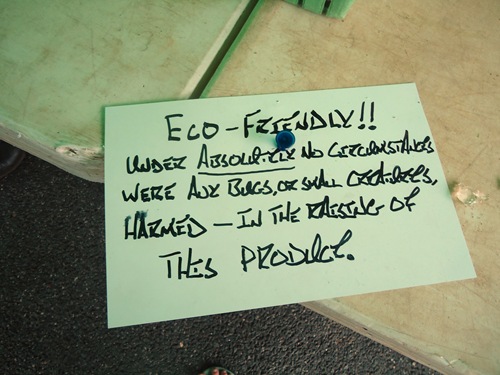 ECO-FRIENDLY!!
UNDER ABSOLUTELY NO CIRCUMSTANCES
WERE ANY BUGS, OR SMALL CREATURES,
HARMED — IN THE RAISING OF
THIS PRODUCE.